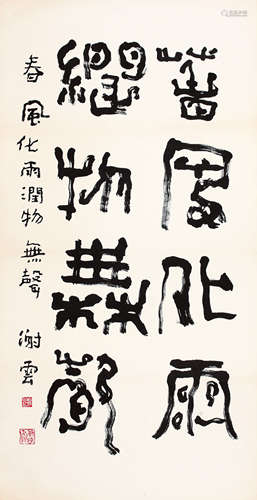 春風化雨
潤物無聲
春風化雨潤物無聲 謝雲